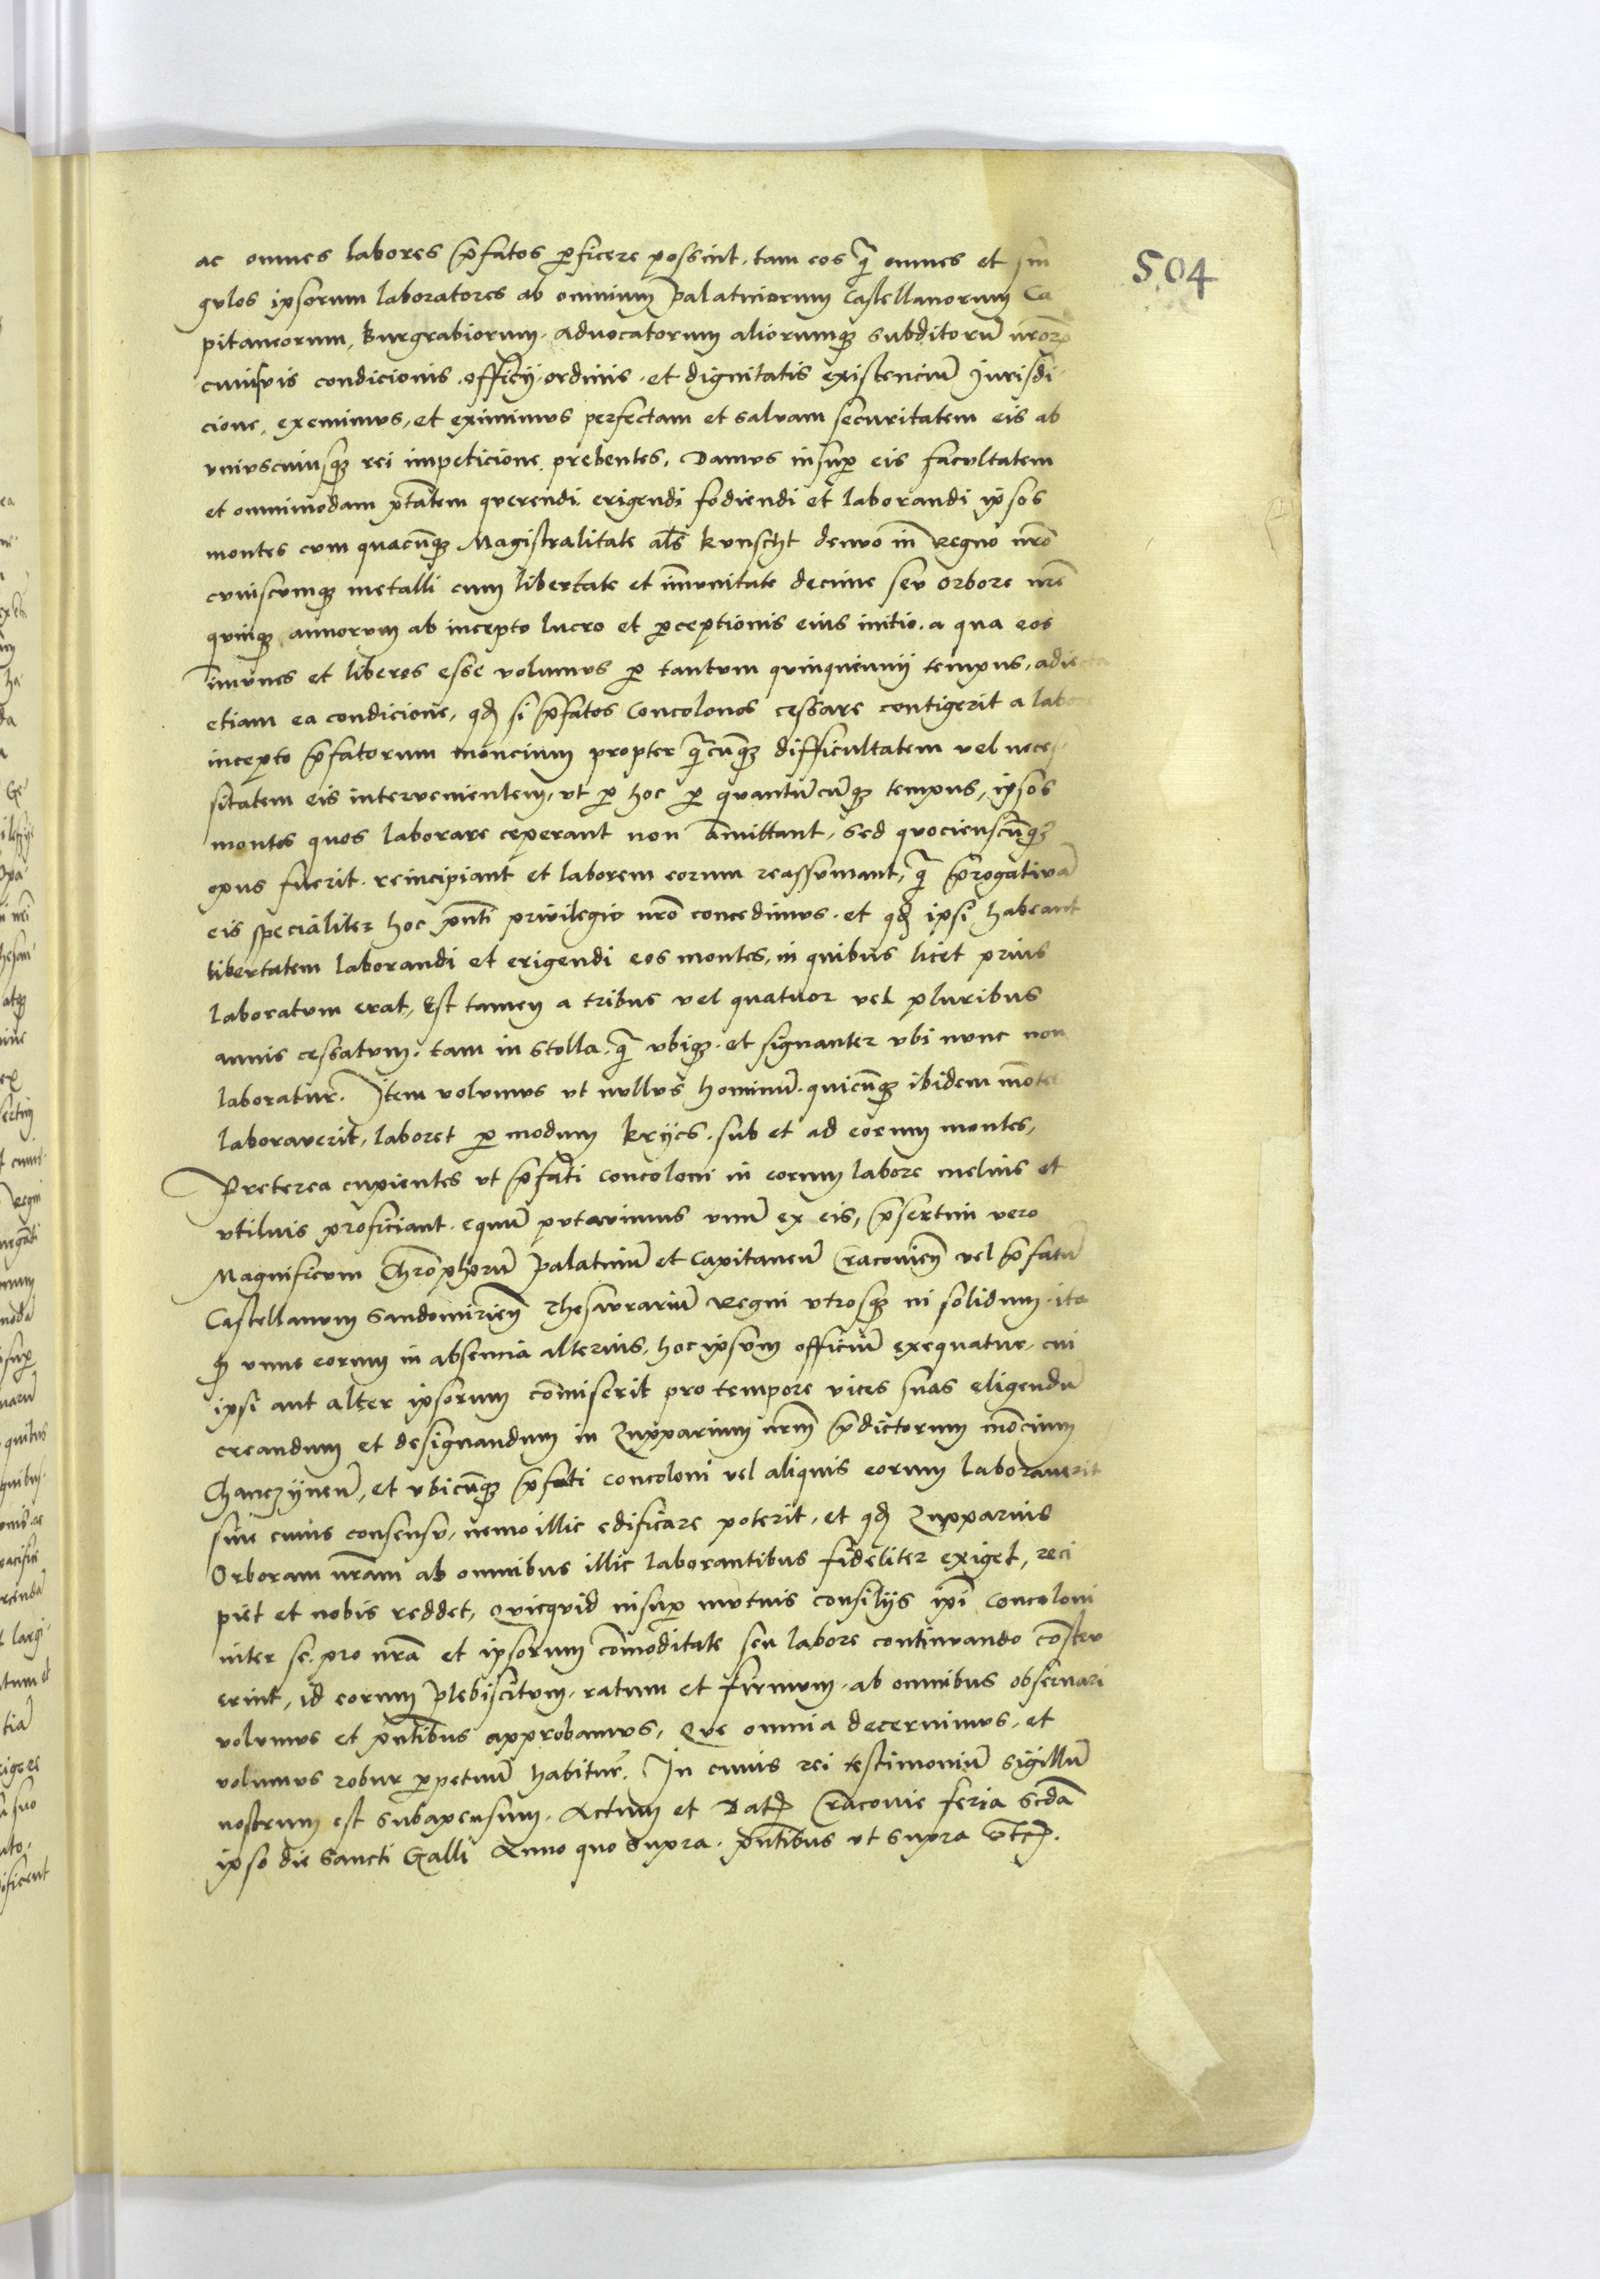 504
ac omnes labores p̄fatos p̱ficere possint, tam eos q̄ omnes et sin
gulos ipsorum laboratores ab omnium palatinorum Castellanorum Ca
pitaneorum, burgrabiorum, advocatorum aliorumqȝ subditorū nr̄orꝝ
cuiusvis condicionis, officij, ordinis, et dignitatis existenciū Jurisdi
cione, exemimus, et eximimus perfectam et salvam securitatem eis ab
uniuscuiusqȝ rei impeticione prebentes, Damus insup̱ eis facultatem
et omnimodam ptātem querendi erigendi fodiendi et laborandi ipsos
montes cum quacūqȝ Magistralitate al̄s kunscht denuo in regno nr̄o
cuiuscumqȝ metalli cum libertate et im̄unitate decime seu orbore nr̄e
quinqȝ annorum ab incepto lucro et p̱ceptionis eius initio, a qua eos
im̄unes et liberos esse volumus p̱ tantum quinquennij tempus, adiecta
etiam ea condicione, qđ si p̄fatos Concolonos cessare contigerit a labore
incepto p̄fatorum moncium propter q̄cūqȝ difficultatem vel neces
sitatem eis intervenientem, ut p̱ hoc p̱ quantūcūqȝ tempus, ipsos
montes quos laborare ceperant non amittant, sed quocienscūqȝ
opus fuerit, reincipiant et laborem eorum reassumant, q̄ p̄rogativā
eis specialiter hoc p̄nti privilegio nr̄o concedimus, et qđ ipsi habeant
libertatem laborandi et erigendi eos montes, in quibus licet prius
laboratum erat, Est tamen a tribus vel quatuor vel pluribus
annis cessatum, tam in stolla, q̄ ubiqȝ, et signanter ubi nunc non
laboratur. Item volumus ut nullus hominū, quicūqȝ ibidem mōtes
laboraverit, laboret p̱ modum kryes, sub et ad eorum montes,
Preterea cupientes ut p̄fati concoloni in eorum labore melius et
utilius proficiant, equū putavimus unū ex eis, p̄sertim vero
Magnificum Chrōphorū palatinū et Capitaneū Cracovieñ vel p̄fatū
Castellanum Sandomirieñ Thesaurariū Regni utrosqȝ in solidum, ita
qđ unus eorum in absencia alterius, hoc ipsum officiū exequatur, cui
ipsi aut alter ipsorum com̄iserit pro tempore vices suas eligendū
creandum et designandum in Zupparium nr̄m p̄dictorum mōcium
Chanczijneñ, et ubicūqȝ p̄fati concoloni vel aliquis eorum laboraverit
sine cuius consensu, nemo illic edificare poterit, et qđ Zupparius
Orboram nr̄am ab omnibus illic laborantibus fideliter exiget, reci
piet et nobis reddet, Quicquid insup̱ mutuis consilijs ip̄i Concoloni
inter se pro nr̄a et ipsorum com̄oditate seu labore continuando cōstitu
erint, id eorum plebiscitum, ratum et firmum, ab omnibus observari
volumus et p̄ntibus approbamus, Que omnia decernimus, et
volumus robur p̱petuū habitur̄. In cuius rei testimoniū sigillū
nostrum est subapensum. Actum et Dat̄ Cracovie feria sc̄da
ipso die Sancti Galli Anno quo supra, p̄ntibus ut supra